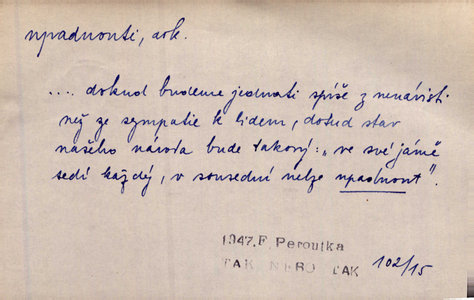 upadnouti, dok.
.... dokud budeme jednati spíše z nenávisti
než ze sympatie k lidem, dotud stav
našeho národa bude takový: „ve své jámě
sedí každý, v sousední nelze upadnout".
1947. F. Peroutka
TAK NEBO TAK
102/15